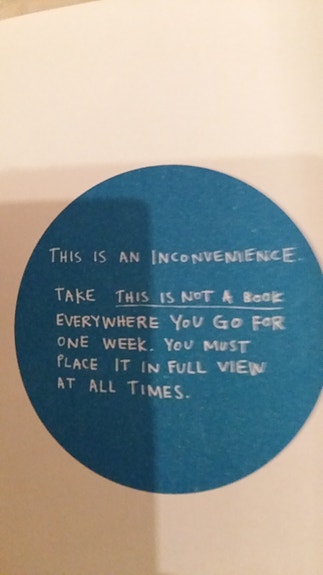 THIS IS AN INCONVENIENCE.
TAKE THIS IS NOT A BOOK
EVERYWHERE YOU GO FOR
ONE WEEK. YOU MUST
PLACE IT IN FULL VIEW
AT ALL TIMES.